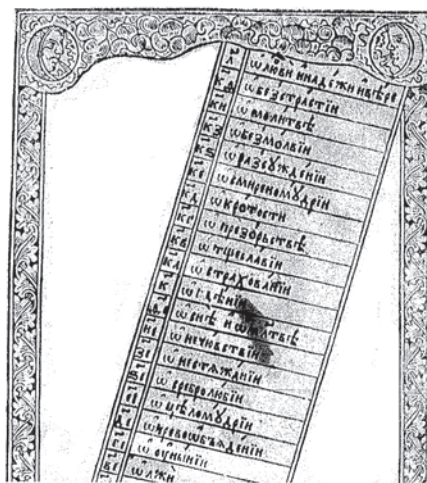 л҃ ѡ҆ любви и надежи и вѣре
к҃ѳ ѡ҆ безстрастїи
к҃и ѡ҆ молитвѣ
к҃з ѡ҆ безмолвїи
к҃ѕ ѡ҆ разсꙋжденїи
к҃е ѡ҆ смиреномꙋдрїи
к҃д ѡ҆ кротости
к҃г ѡ҆ презорьствѣ
к҃в ѡ҆ тщеславїи
к҃а ѡ҆ страхованїи
к҃ ѡ҆
ѡ҆ снѣ и
и҃і ѡ҆ нечювствїи
з҃і ѡ҆ нестѧжанїи
ѕ҃і ѡ҆ сребролюбїи
е҃і ѡ҆ цѣломꙋдрїи
д҃і ѡ҆ чревоѡбъѧденїи
г҃і ѡ҆ оунынїи
в҃і ѡ҆ лжи